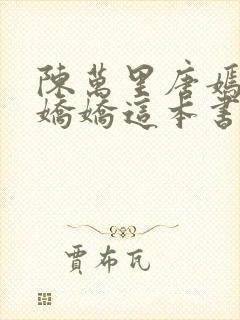 陳萬里唐嫣
嬌嬌這本書
賈布瓦